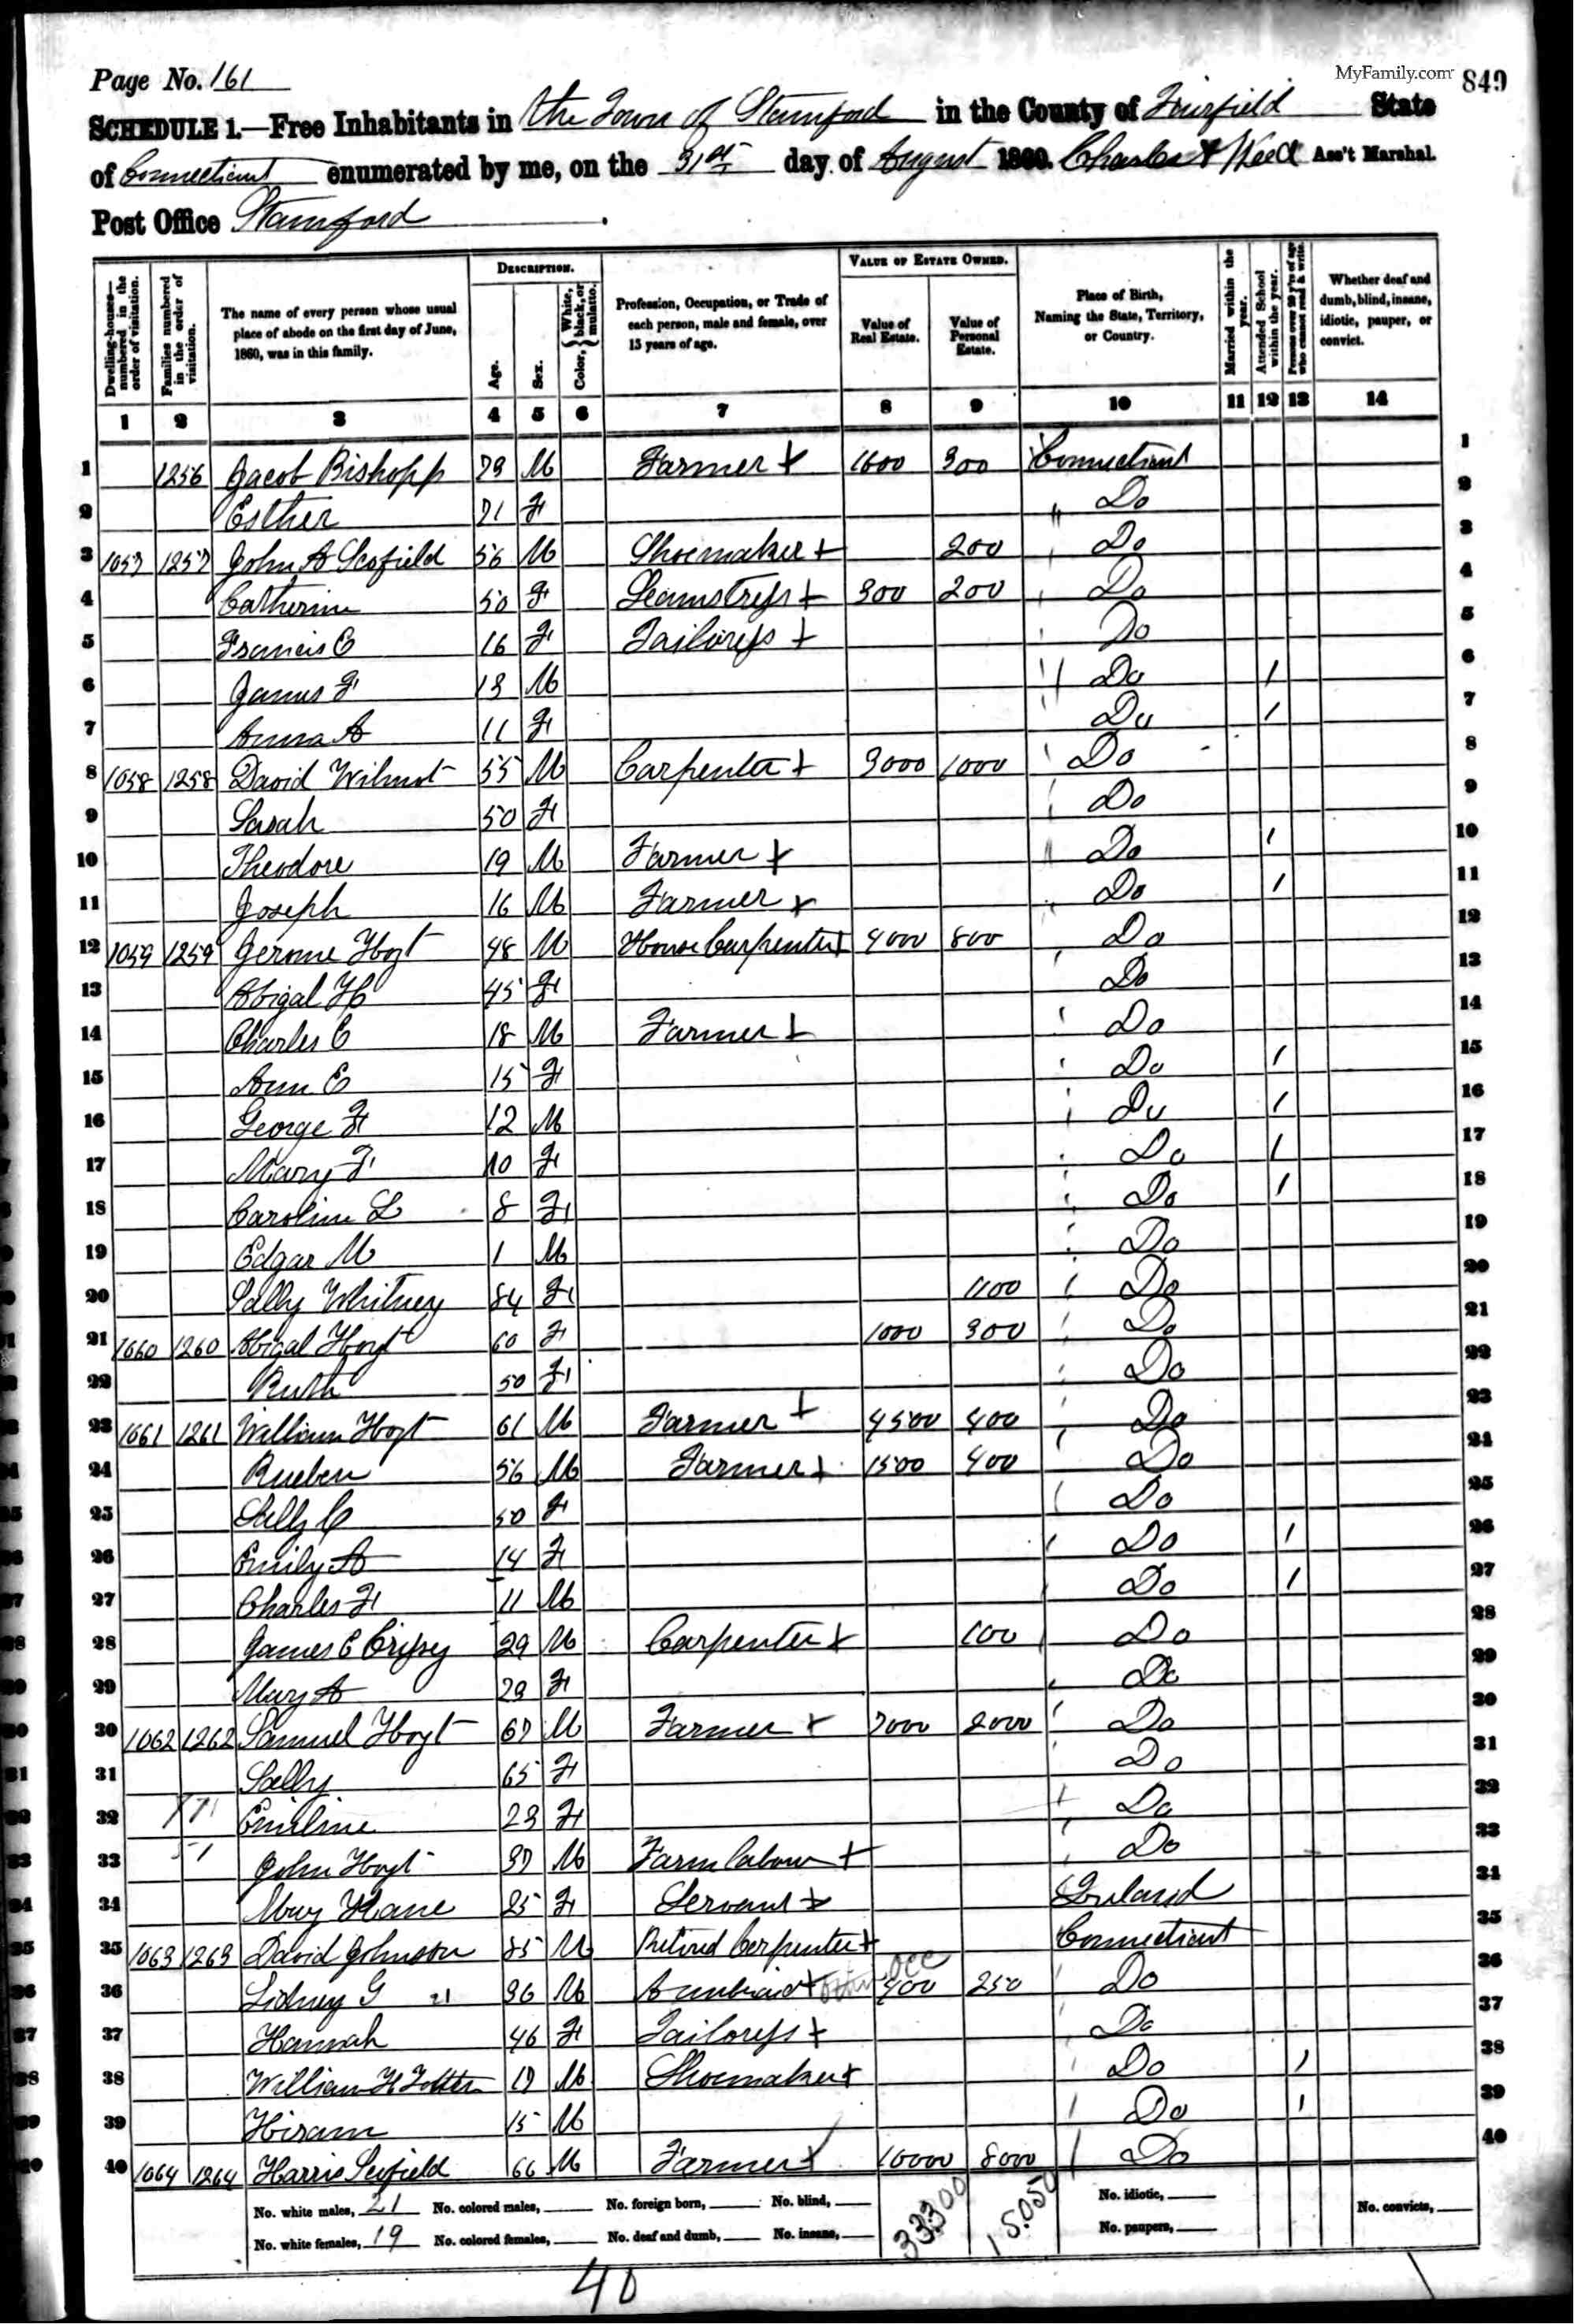 Page No. 161
MyFamily.com 849
SCHEDULE 1.—Free Inhabitants in the Town of Stamford in the County of Fairfield State
of Connecticut enumerated by me, on the 31st day of August 1860. Charles Weed Ass't Marshal.
Post Office Stamford.
Dwelling-houses—numbered in the order of visitation.
Families numbered in the order of visitation.
The name of every person whose usual place of abode on the first day of June, 1860, was in this family.
DESCRIPTION.
Age.
Sex.
Color, { White, black, or mulatto.
Profession, Occupation, or Trade of each person, male and female, over 15 years of age.
VALUE OF ESTATE OWNED.
Value of Real Estate.
Value of Personal Estate.
Place of Birth, Naming the State, Territory, or Country.
Married within the year.
Attended School within the year.
Persons over 20 y'rs of age who cannot read & write.
Whether deaf and dumb, blind, insane, idiotic, pauper, or convict.
1 2 3 4 5 6 7 8 9 10 11 12 13 14
1 1256 Jacob Bishopp M Farmer + 300 Connecticut 1
2 Esther 71 F Do 2
3 1057 1257 John A Scofield 56 M Shoemaker + 200 Do 3
4 Catherine 50 F Seamstress + 300 200 Do 4
5 Francis E 16 F Tailoress + Do 5
6 James F 13 M Do 1 6
7 Anna A 11 F Do 1 7
8 1058 1258 David Wilmot 55 M Carpenter + 3000 1000 Do 8
9 Sarah 50 F Do 9
10 Theodore 19 M Farmer + Do 1 10
11 Joseph 16 M Farmer + Do 1 11
12 1059 1259 Jerome Hoyt 48 M House Carpenter + 4000 800 Do 12
13 Abigal H 45 F Do 13
14 Charles E 18 M Farmer + Do 14
15 Ann E 15 F Do 1 15
16 George F 12 M Do 1 16
17 Mary F 10 F Do 1 17
18 Caroline L 8 F Do 1 18
19 Edgar M 1 M Do 19
20 Sally Whitney 84 F 1100 Do 20
21 1060 1260 Abigal Hoyt 60 F 1000 300 Do 21
22 Ruth 50 F Do 22
23 1061 1261 William Hoyt 61 M Farmer + 4500 400 Do 23
24 Rueben 56 M Farmer + 1500 400 Do 24
25 Sally C 50 F Do 25
26 Emily A 14 F Do 1 26
27 Charles F 11 M Do 1 27
28 James C 29 M Carpenter + 100 Do 28
29 Mary A F Do 29
30 1062 1262 Samuel Hoyt 67 M Farmer + 7000 2000 Do 30
31 Sally 65 F Do 31
32 Emiline F Do 32
33 John Hoyt 37 M Farm labour + Do 33
34 Mary Kane 25 F Servant + Ireland 34
35 1063 1263 David Johnson 85 M Retired Carpenter + Connecticut 35
36 Sidney G " 36 M 400 250 Do 36
37 Hannah 46 F Tailoress + Do 37
38 William H 17 M Shoemaker + Do 1 38
39 Hiram 15 M Do 1 39
40 1064 1264 Harris Scofield 66 M Farmer + 10000 8000 Do 40
No. white males, 21 No. colored males, No. foreign born, No. blind, 33300 15.050 No. idiotic, No. convicts,
No. white females, 19 No. colored females, No. deaf and dumb, No. insane, No. paupers,
40